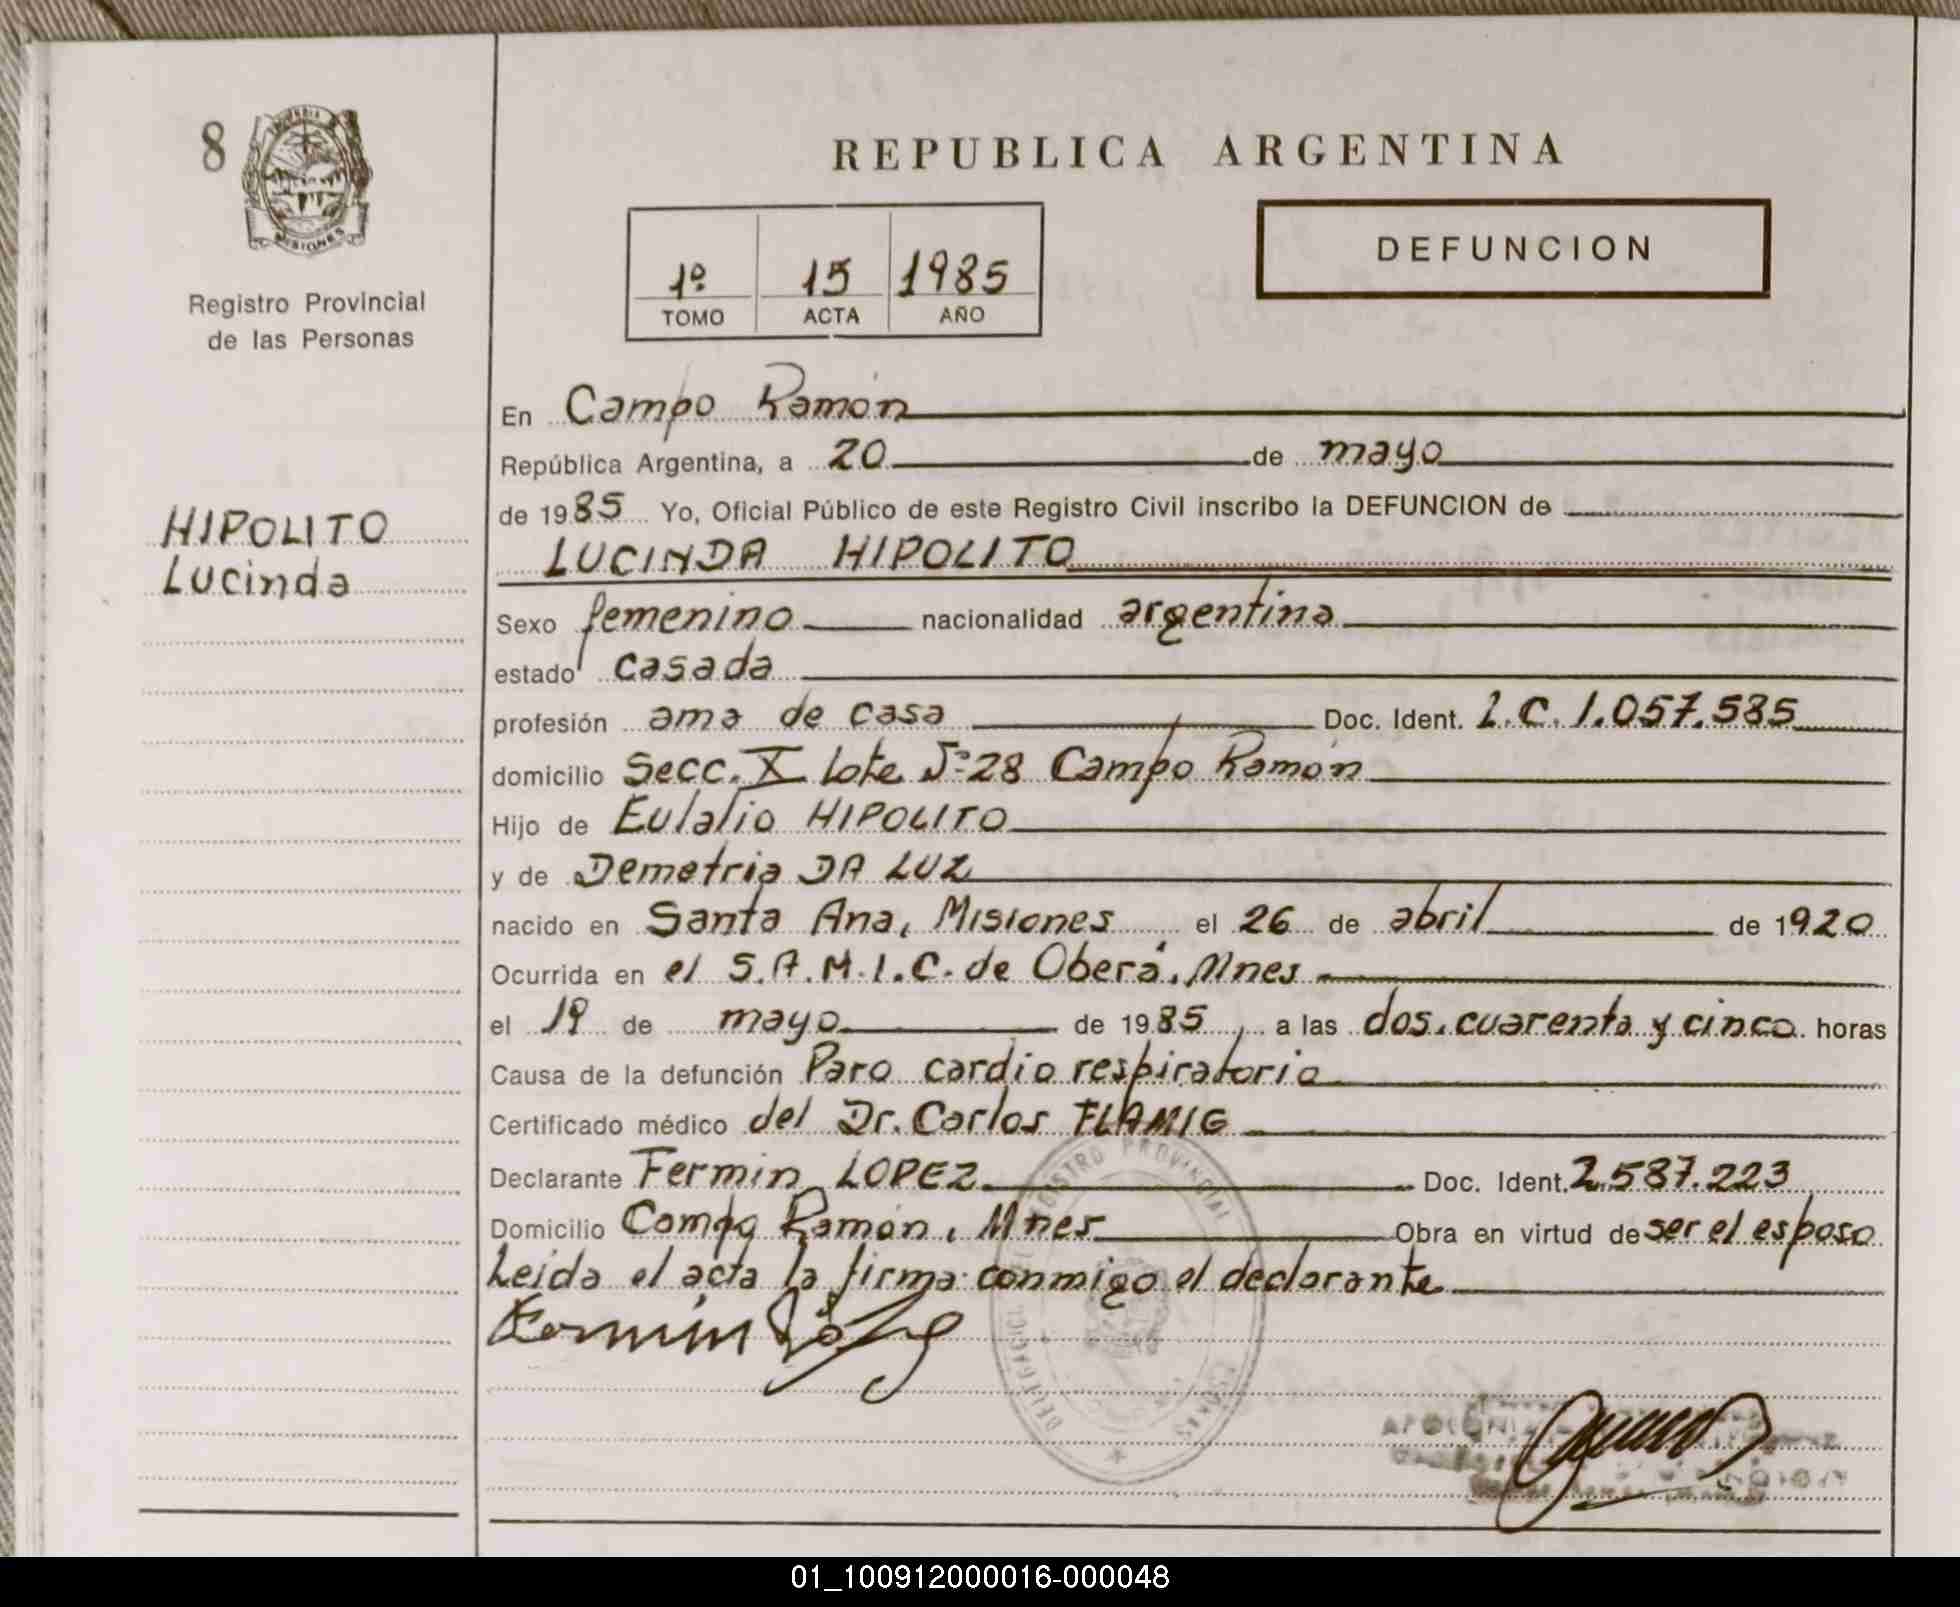 8
MISIONES
Registro Provincial
de las Personas
HIPOLITO
Lucinda
REPUBLICA ARGENTINA
DEFUNCION
1º 15 1985
TOMO ACTA AÑO
En Campo Ramón
República Argentina, a 20 de mayo
de 1985 Yo, Oficial Público de este Registro Civil inscribo la DEFUNCION de
LUCINDA HIPOLITO
Sexo femenino nacionalidad argentina
estado casada
profesión ama de casa Doc. Ident. L.C. 1.057.585
domicilio Secc. X lote 28 Campo Ramón
Hijo de Eulalio HIPOLITO
y de Demetria DA LUZ
nacido en Santa Ana, Misiones el 26 de abril de 1920
Ocurrida en el S.A.M.I.C. de Oberá, Mnes
el 19 de mayo de 1985, a las dos, cuarenta y cinco horas
Causa de la defunción Paro cardio respiratorio
Certificado médico del Dr. Carlos FLAMIG
Declarante Fermin LOPEZ Doc. Ident. 2.587.223
Domicilio Campo Ramón, Mnes Obra en virtud de ser el esposo
Leida el acta la firma conmigo el declarante
REGISTRO PROVINCIAL
01_100912000016-000048